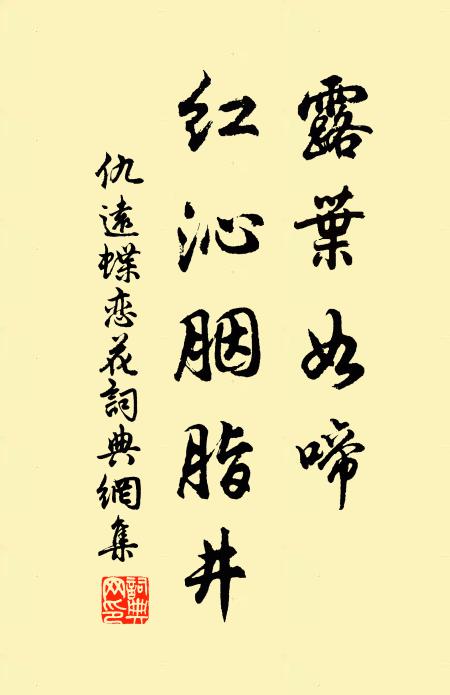 露葉如啼
紅沁胭脂井
仇遠蝶恋花詞典網集
詞典网印